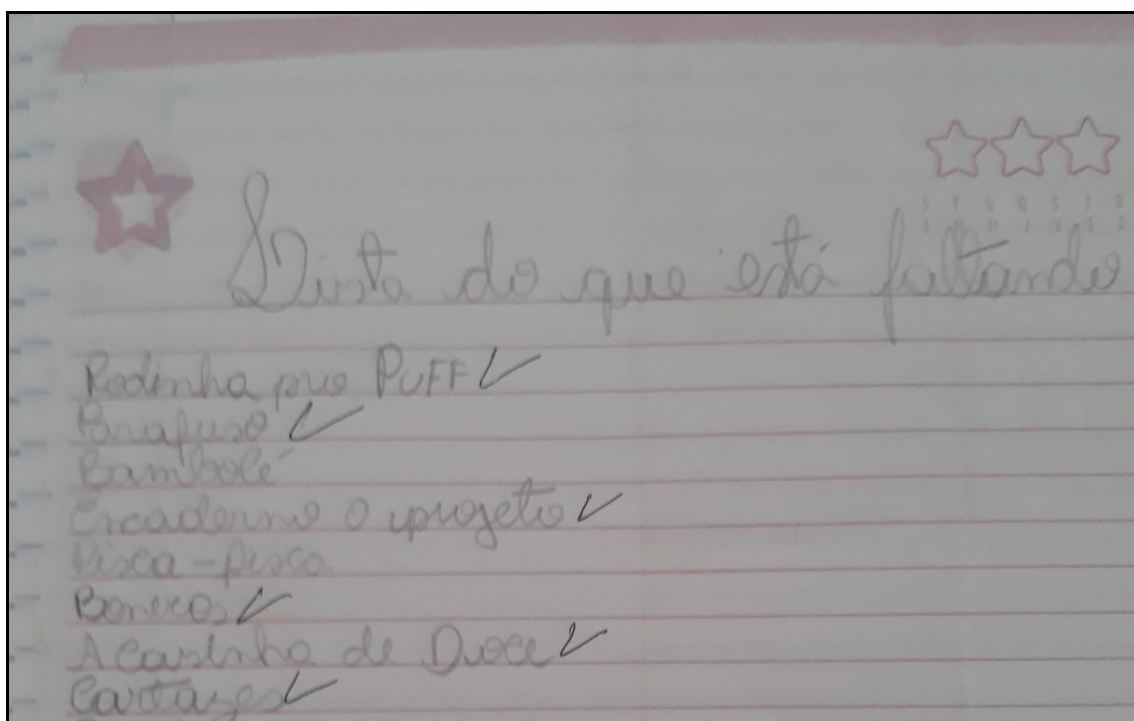 Lista do que está faltando
Rodinha pro PUFF
Parafuso
Bambolê
Encaderno o projeto
Pisca-pisca
Bonecos
A Casinha de Doce
Cartazes